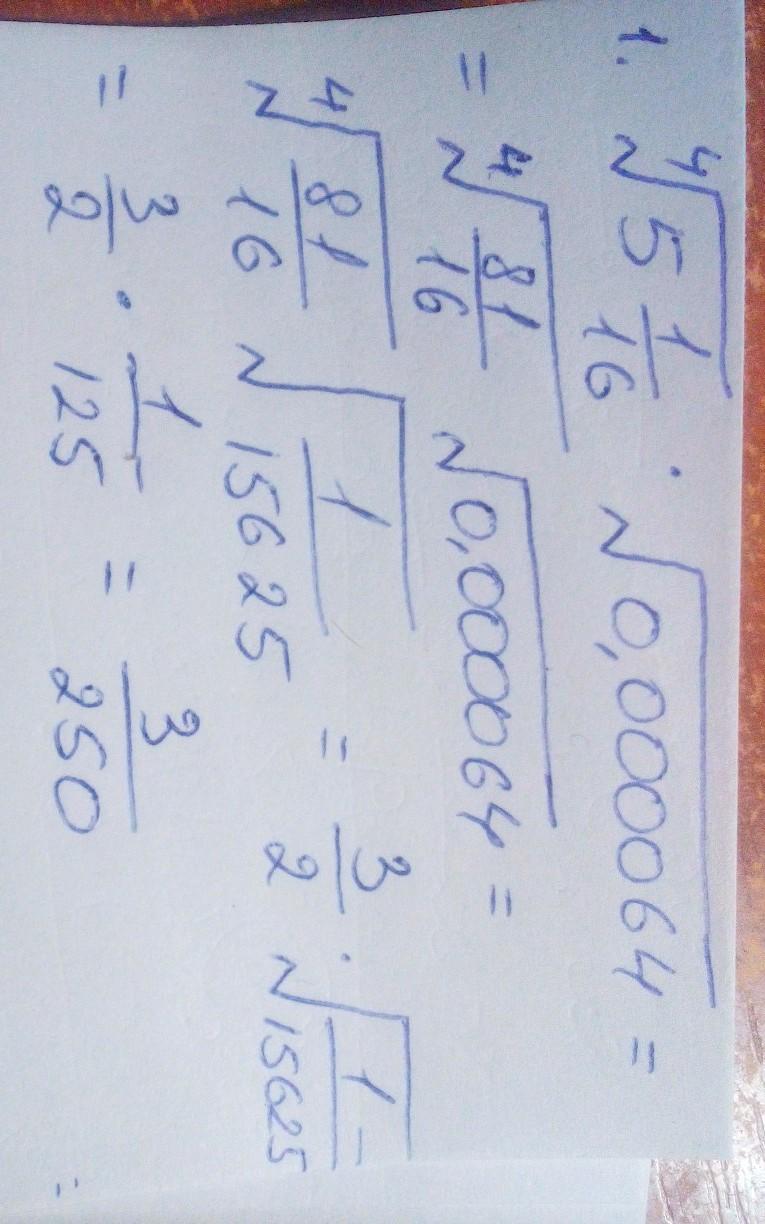 1. ⁴√5 1/16 · √0,000064 =
= ⁴√81/16 √0,000064 =
⁴√81/16 √1/15625 = 3/2 · √1/15625 =
= 3/2 · 1/125 = 3/250